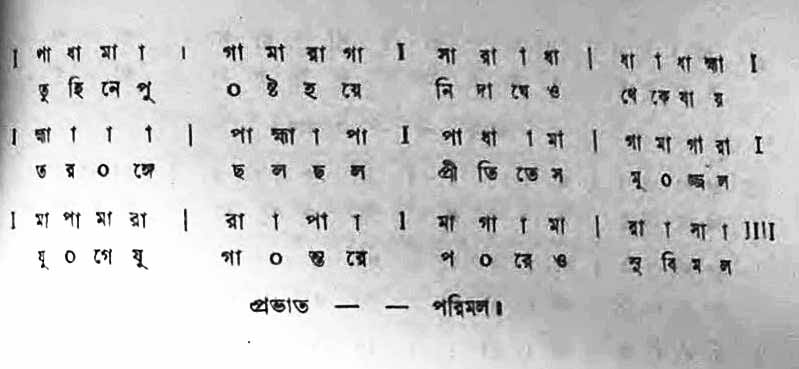 I পা ধা মা া । গা মা রা গা I সা রা া ধা | ধা া ধা হ্মা I
তু হি নে পূ ০ ষ্ট হ য়ে নি দা ঘে ও থে কে যা য়
I হ্মা া া া | পা হ্মা া পা I পা ধা া মা | গা মা গা রা I
ত র ০ ঙ্গে ছ ল ছ ল প্রী তি তে স মু ০ জ্জ্ব ল
I মা পা মা রা | রা া পা া I মা গা া মা | রা া সা া IIII
যু ০ গে যু গা ০ ন্ত রে প ০ রে ও সু বি ম ল
প্রভাত — — পরিমল।